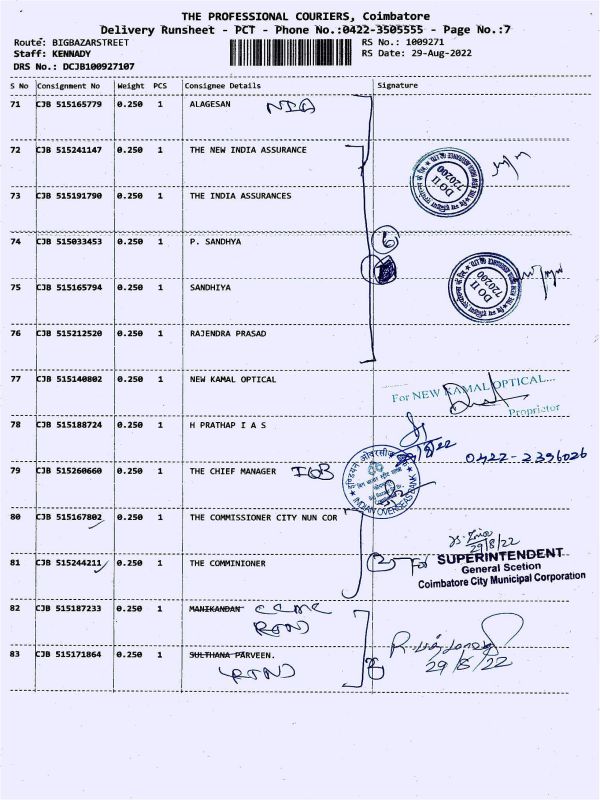 THE PROFESSIONAL COURIERS, Coimbatore
Delivery Runsheet - PCT - Phone No.:0422-3505555 - Page No.:7
Route: BIGBAZARSTREET
Staff: KENNADY
DRS No.: DCJB100927107
RS No.: 1009271
RS Date: 29-Aug-2022
S No Consignment No Weight PCS Consignee Details Signature
71 CJB 515165779 0.250 1 ALAGESAN NIA
72 CJB 515241147 0.250 1 THE NEW INDIA ASSURANCE
DO II
720200
73 CJB 515191790 0.250 1 THE INDIA ASSURANCES
74 CJB 515033453 0.250 1 P. SANDHYA 6
75 CJB 515165794 0.250 1 SANDHIYA
DO II
720200
76 CJB 515212520 0.250 1 RAJENDRA PRASAD
77 CJB 515140802 0.250 1 NEW KAMAL OPTICAL
For NEW KAMAL OPTICAL...
Proprietor
78 CJB 515188724 0.250 1 H PRATHAP I A S
0422-2396026
79 CJB 515260660 0.250 1 THE CHIEF MANAGER IOB
INDIAN OVERSEAS BANK
80 CJB 515167802 0.250 1 THE COMMISSIONER CITY NUN COR
29/8/22
81 CJB 515244211 0.250 1 THE COMMINIONER 2 For SUPERINTENDENT
General Scetion
Coimbatore City Municipal Corporation
82 CJB 515187233 0.250 1 MANIKANDAN CCMC
RTND
83 CJB 515171864 0.250 1 SULTHANA PARVEEN.
RTND
29/8/22